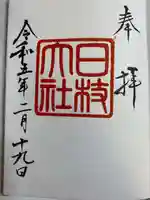 奉拝
日枝大社
令和五年二月十九日